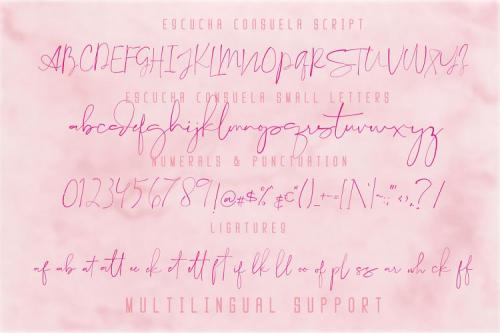 ESCUCHA CONSUELA SCRIPT
ABCDEFGHIJKLMNOPQRSTUVWXYZ
ESCUCHA CONSUELA SMALL LETTERS
abcdefghijklmnopqrstuvwxyz
NUMERALS & PUNCTUATION
0123456789!@#$%
LIGATURES
af ab at att ee ck et ett ft if lk ll oo of pl sz ar wh ck ff
MULTILINGUAL SUPPORT